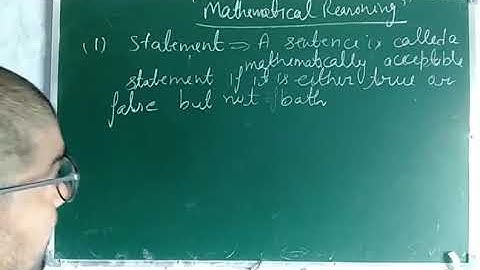 "Mathematical Reasoning"
(1) Statement ⇒ A sentence is called a
mathematically acceptible
statement if it is either true or
false but not both